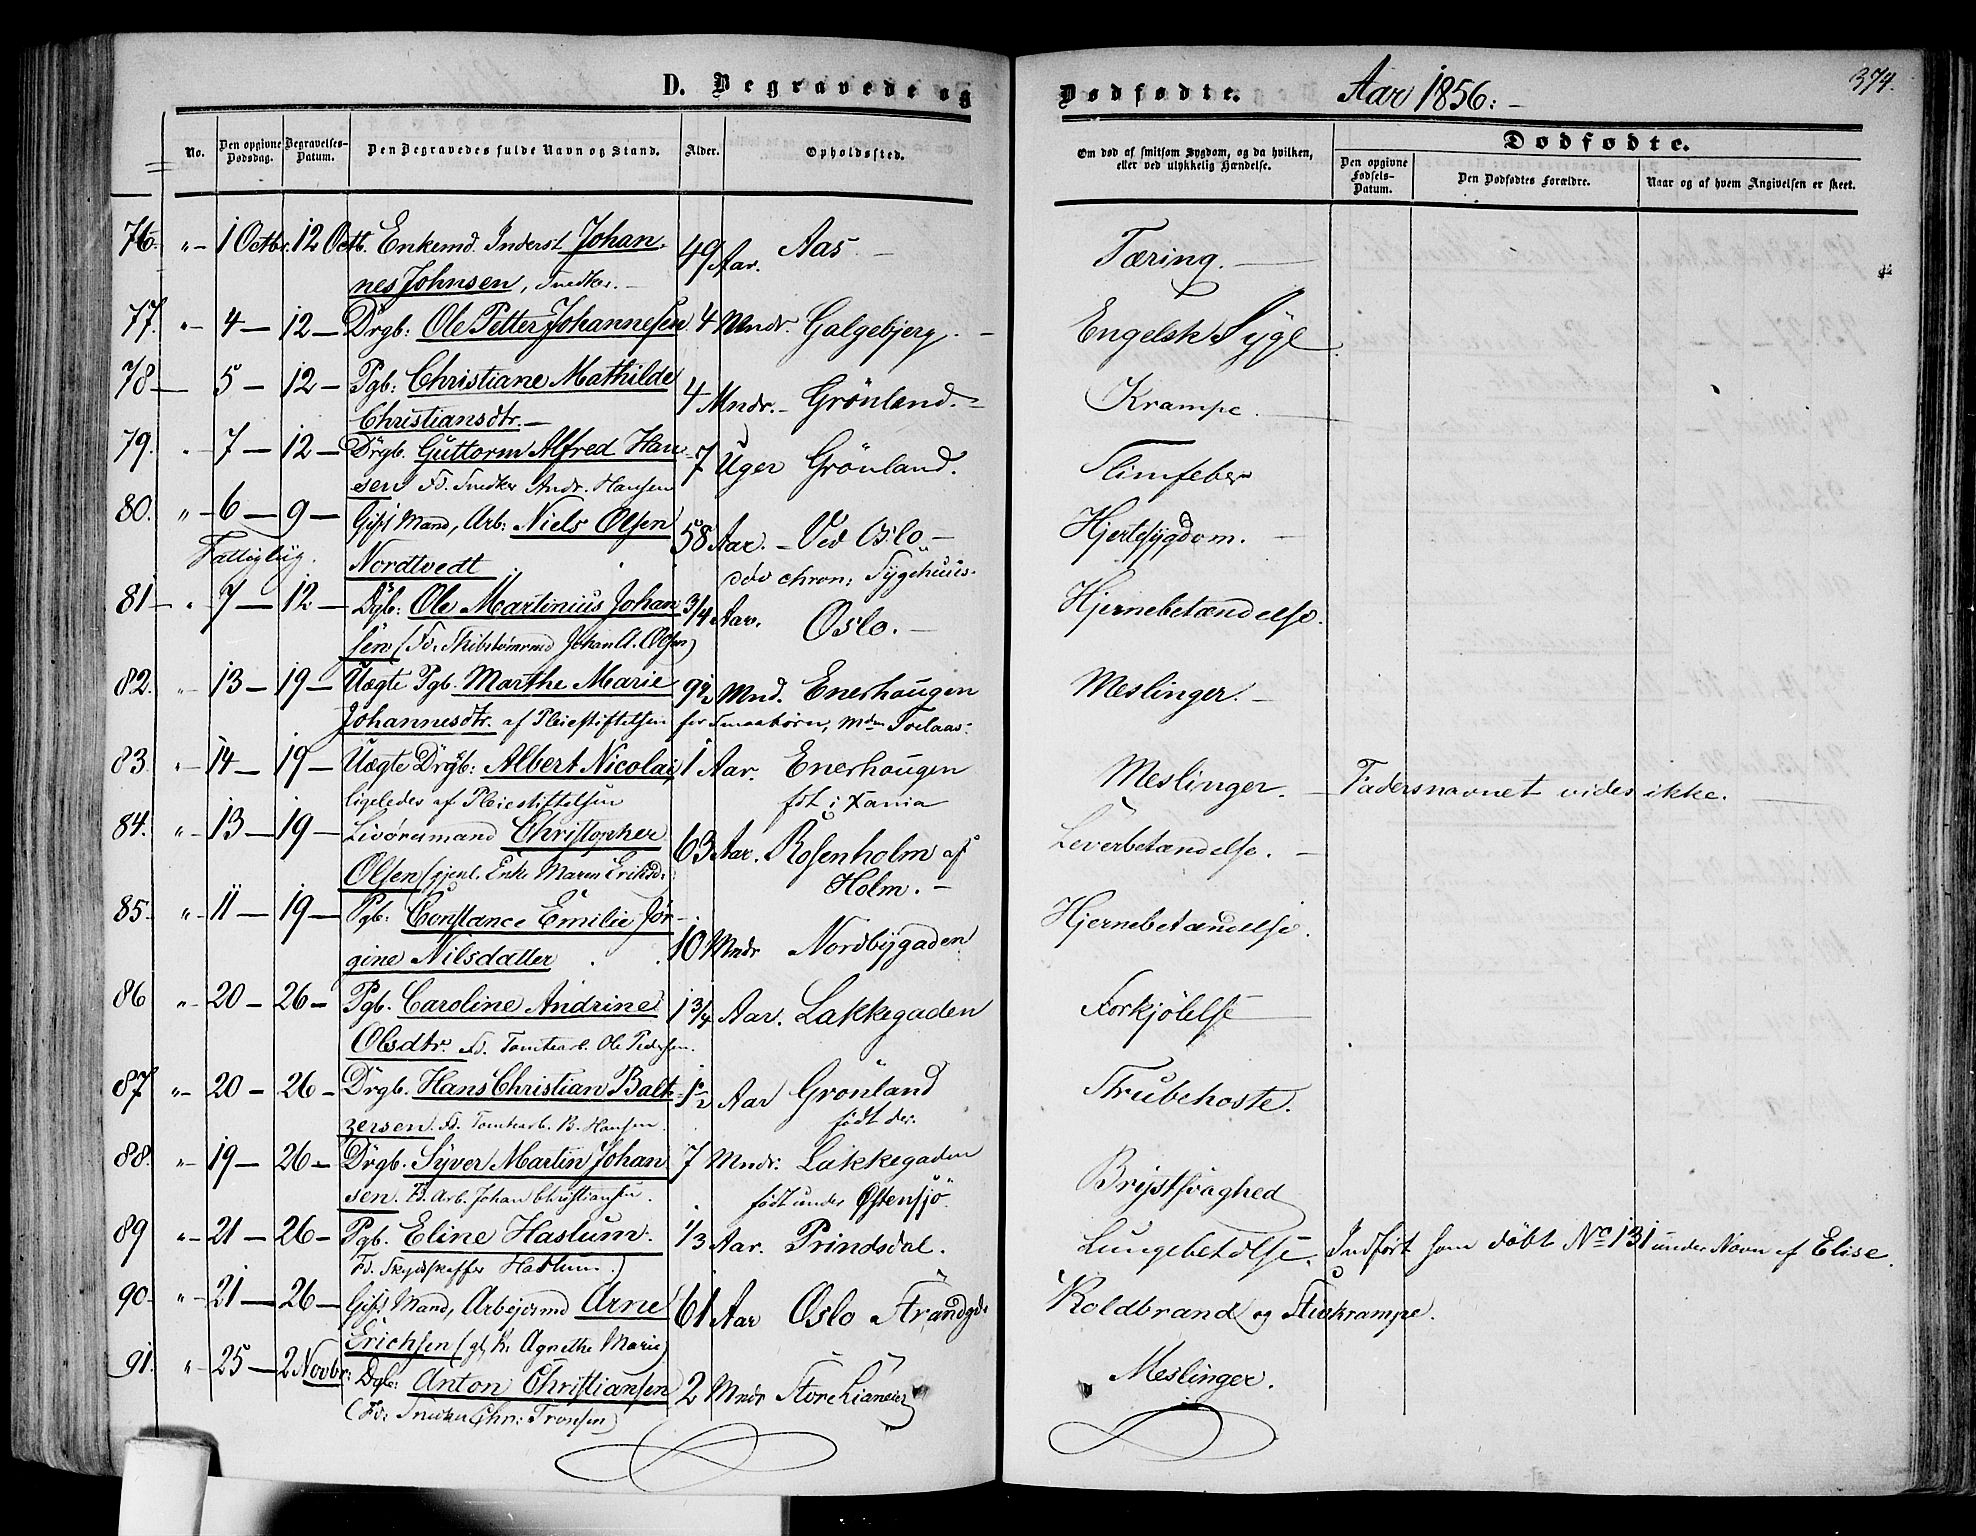 D. Begravede og Dødfødte. Aar 1856:- 374.
No. Den opgivne Dødsdag. Begravelses-Datum. Den Begravedes fulde Navn og Stand. Alder. Opholdssted. Om død af smitsom Sygdom, og da hvilken, eller ved ulykkelig Hændelse.
Dødfødte.
Den opgivne Fødsels-Datum. Den Dødfødtes Forældre. Naar og af hvem Angivelsen er skeet.
76. " 1 Octbr. 12 Octb. Enkemd. Inderst Johan- 49 Aar. Aas Tæring.
nes Johnsen, Snedker.
77. " 4 12 Drgb: Ole Petter Johannesen 4 Mndr. Galgebjerg. Engelsk Syge
78 5 12 Pgb: Christiane Mathilde 4 Mndr. Grönland. Krampe.
Christiansdtr.
79. " 7 12 Drgb. Guttorm Alfred Han- 7 Uger Grönland. Slimfeber
sen Fd. Snedker Andr. Hansen
80. " 6 9 Gift Mand, Arb: Niels Olsen 58 Aar. Ved Oslo Hjertesygdom.
Fattiglig. Nordtvedt döv chron: Sygehuus.
81 " 7 12 Dgb: Ole Martinius Johan- 3/4 Aar. Oslo. Hjernebetændelse.
sen (Fd. Skibstømrmd Johan A. Olsen)
82. " 13 19 Uægte Pgb. Marthe Marie 9 1/2 Mnd. Enerhaugen Meslinger.
Johannesdtr. af Pleiestiftelsen for Smaabørn, Mdm
83. " 14 19 Uægte Drgb: Albert Nicolai 1 Aar. Enerhaugen Meslinger. Fadersnavnet vides ikke.
ligeledes af Pleiestiftelsen fdt i Xania
84. " 13 19 Livøresmand Christopher 63 Aar. Rosenholm af Leverbetændelse.
Olsen (gjenl. Enke Maren Eriksd: Holm.
85. " 11 19 Pgb: Constance Emilie Jør- 10 Mndr Nordbygaden Hjernebetændelse.
gine Nilsdatter
86 " 20 26 Pgb. Caroline Andrine 1 3/4 Aar. Lakkegaden Forkjölelse
Olsdtr. Fd. Tomtearb. Ole Pedersen.
87 " 20 26 Drgb. Hans Christian Balt- 1 1/2 Aar Grönland Strubehoste.
zersen. Fd. Tomtearb. B. Hansen. födt der.
88. " 19 26 Drgb. Syver Martin Johan- 7 Mndr: Lakkegaden Brystsvaghed
sen. Fd. Arb. Johan Christiansen. födt under Østensjö
89 " 21 26 Pgb. Eline Haslum. 1/3 Aar. Prindsdal. Lungebetdlse. Indført som döbt No 131 under Navn af Elise.
Fd. Skydsskaffer Haslum.)
90. " 21 26 Gift Mand, Arbejdrmd Arne 61 Aar Oslo Strandgd. Koldbrand og Stivkrampe.
Erichsen (gl. K. Agnethe Marie)
91. " 25 2 Novbr: Dgb: Anton Christiansen 2 Mndr Store Meslinger.
(Fd: Snedker Chr: Tronsen)